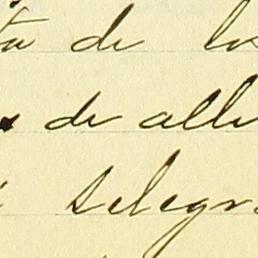 ta de los
s de alli
telegr